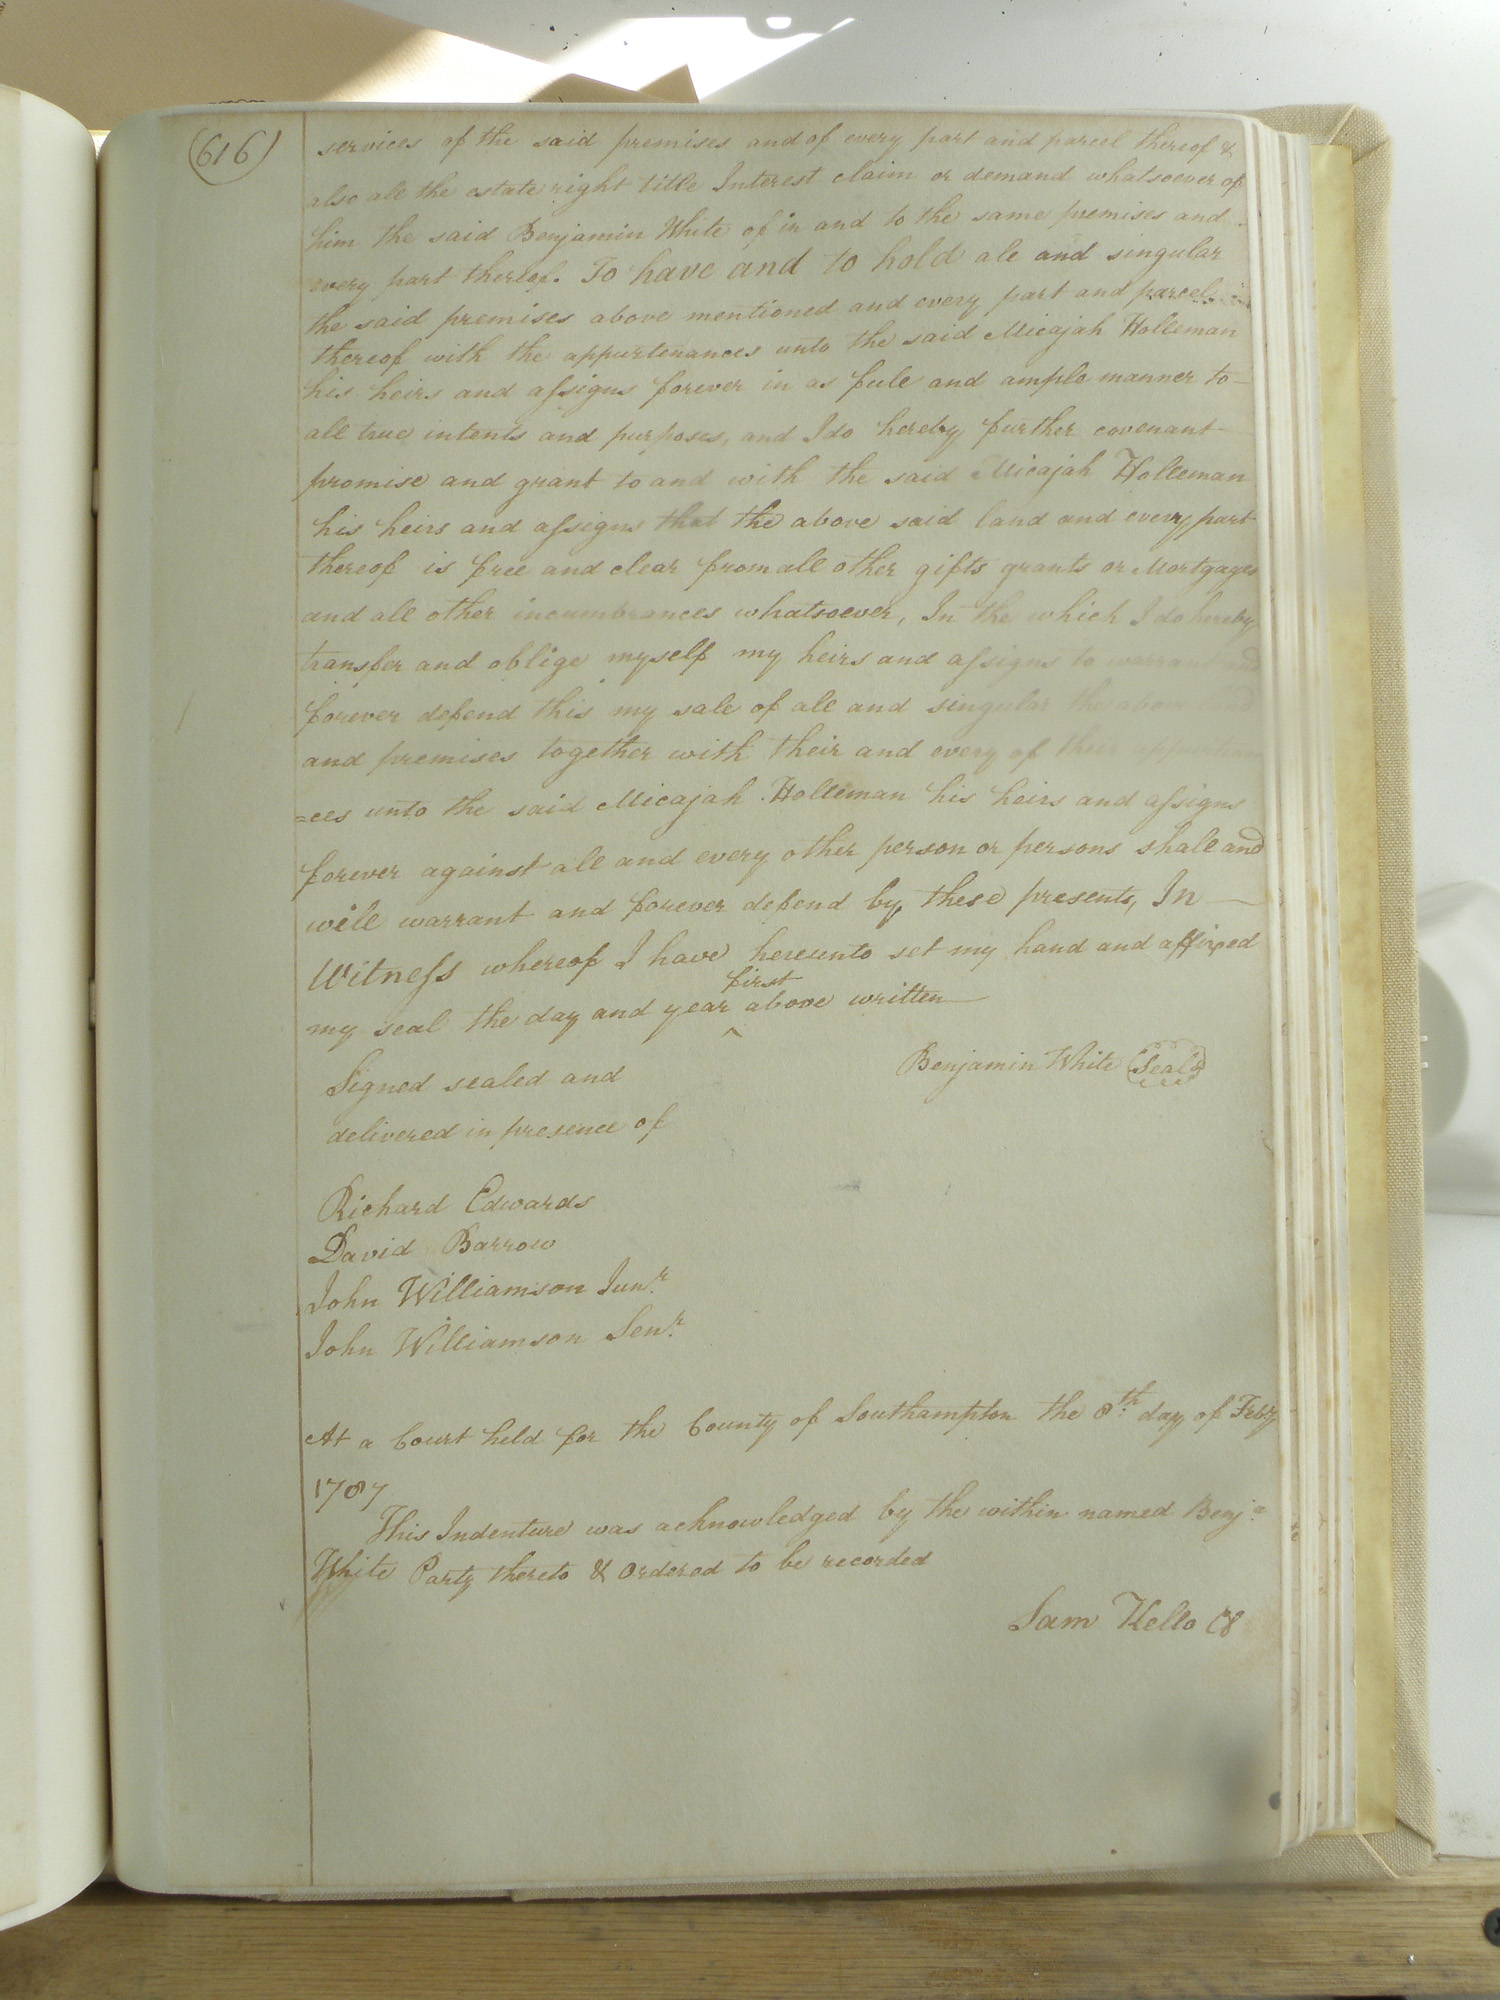 (616)
services of the said premises and of every part and parcel thereof &
also all the estate right title Interest claim or demand whatsoever of
him the said Benjamin White of in and to the same premises and
every part thereof. To have and to hold all and singular
the said premises above mentioned and every part and parcel
thereof with the appurtenances unto the said Micajah Holleman
his heirs and assigns forever in as full and ample manner to
all true intents and purposes, and I do hereby further covenant
promise and grant to and with the said Micajah Holleman
his heirs and assigns that the above said land and every part
thereof is free and clear from all other gifts grants or Mortgages
and all other incumbrances whatsoever, In the which I do hereby
transfer and oblige myself my heirs and assigns to warrant and
forever defend this my sale of all and singular the above
and premises together with their and every of their
=ces unto the said Micajah Holleman his heirs and assigns
forever against all and every other person or persons shall and
will warrant and forever defend by these presents, In
Witness whereof I have hereunto set my hand and affixed
my seal the day and year first above written
Benjamin White (Seal)
Signed sealed and
delivered in presence of
Richard Edwards
David Barrow
John Williamson Junr.
John Williamson Senr.
At a Court held for the County of Southampton the 8th day of Feby
1787
This Indenture was acknowledged by the within named Benja
White Party thereto & Ordered to be recorded
Sam Kello C